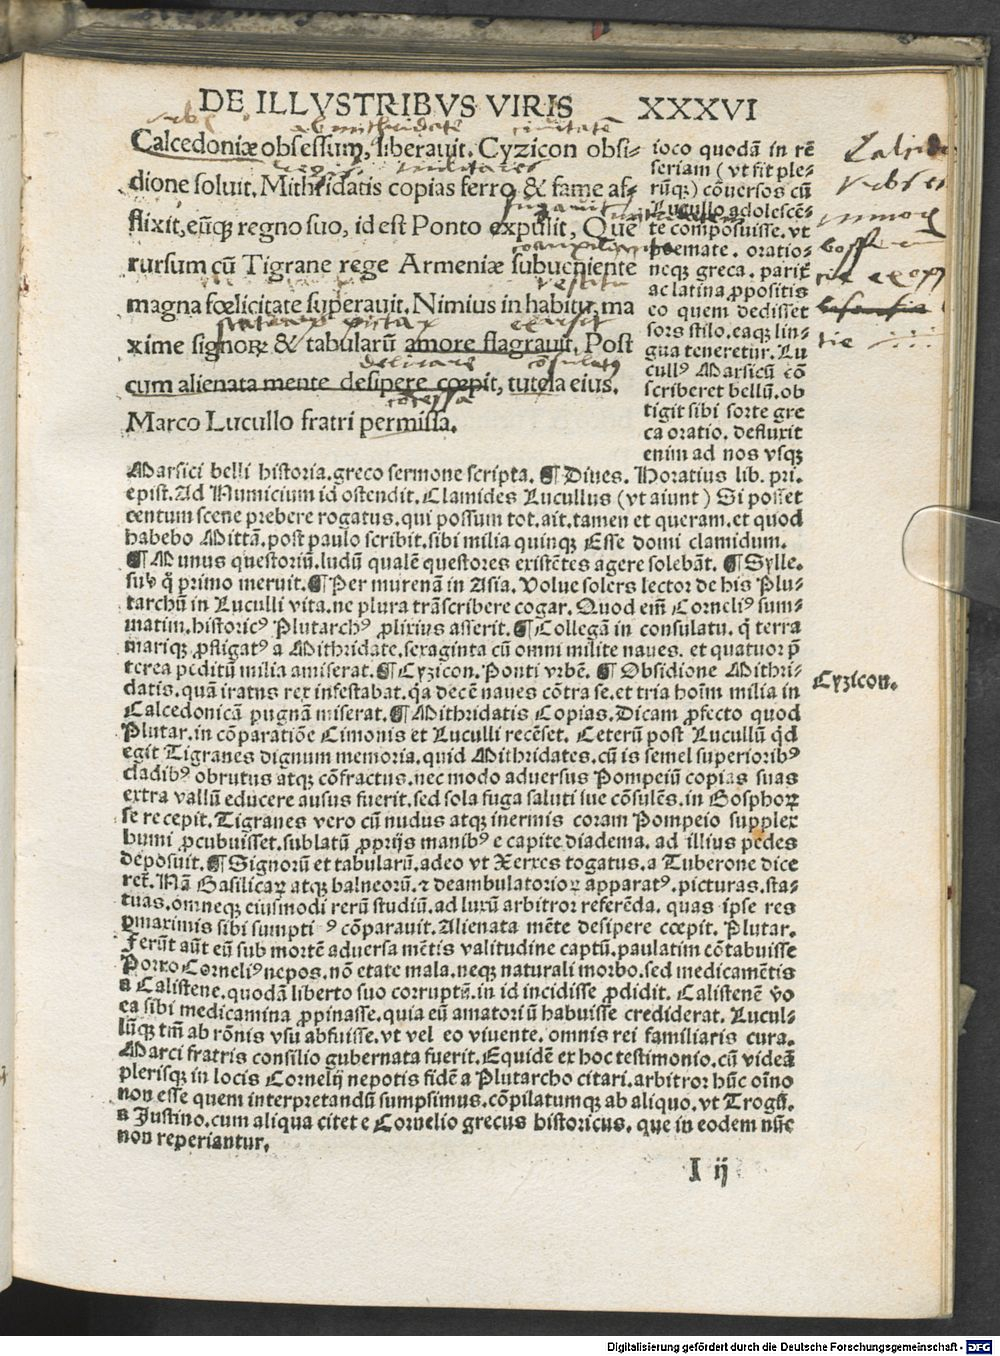 DE ILLVSTRIBVS VIRIS XXXVI
Calcedoniæ obsessum, liberauit. Cyzicon obsi-
dione soluit. Mithridatis copias ferro & fame af-
flixit, eūq; regno suo, id est Ponto expulit, Que
rursum cū Tigrane rege Armeniæ subueniente
magna fœlicitate superauit. Nimius in habitu, ma
xime signoꝝ & tabularū amore flagrauit. Post
cum alienata mente desipere cœpit, tutela eius.
Marco Lucullo fratri permissa.
ioco quodā in rē
seriam (vt fit ple-
rūq;) cōuersos cū
Lucullo adolescē-
te composuisse. vt
poemate. oratio-
neq; greca. parit̄
ac latina ꝓpositis
eo quem dedisset
sors stilo. eaq; lin-
gua teneretur. Lu
cullꝰ Marsicū cō
scriberet bellū. ob
tigit sibi sorte gre
ca oratio. defluxit
enim ad nos vsq;
Marsici belli historia. greco sermone scripta. ¶ Diues. Horatius lib. pri.
epist. Ad Numicium id ostendit. Clamides Lucullus (vt aiunt) Si posset
centum scene prebere rogatus. qui possum tot. ait. tamen et queram. et quod
habebo Mittā. post paulo scribit. sibi milia quinq; Esse domi clamidum.
¶ Munus questoriū. ludū qualē questores existētes agere solebāt. ¶ Sylle.
sub q̄ primo meruit. ¶ Per murenā in Asia. Volue solers lector de his Plu-
tarchū in Luculli vita. ne plura trāscribere cogar. Quod em̄ Corneliꝰ sum-
matim. historicꝰ Plutarchꝰ ꝓlixius asserit. ¶ Collegā in consulatu. q̄ terra
mariq; ꝓfligatꝰ a Mithridate. sexaginta cū omni milite naues. et quatuor p̄
terea peditū milia amiserat. ¶ Cyzicon. Ponti vrbē. ¶ Obsidione Mithri-
datis. quā iratus rex infestabat. q̄a decē naues cōtra se. et tria hoīm milia in
Calcedonicā pugnā miserat. ¶ Mithridatis Copias. Dicam ꝓfecto quod
Plutar. in cōparatiōe Cimonis et Luculli recēset. Ceterū post Lucullū qd̄
egit Tigranes dignum memoria. quid Mithridates. cū is semel superioribꝰ
cladibꝰ obrutus atq; cōfractus. nec modo aduersus Pompeiū copias suas
extra vallū educere ausus fuerit. sed sola fuga saluti sue cōsulēs. in Bosphoꝝ
se recepit. Tigranes vero cū nudus atq; inermis coram Pompeio supplex
humi ꝓcubuisset. sublatū ꝓprijs manibꝰ e capite diadema. ad illius pedes
deposuit. ¶ Signorū et tabularū. adeo vt Xerxes togatus. a Tuberone dice
ret̄. Nā Basilicaꝝ atq; balneorū. ⁊ deambulatorioꝝ apparatꝰ. picturas. sta-
tuas. omneq; eiusmodi rerū studiū. ad luxū arbitror referēda. quas ipse res
ꝑmaximis sibi sumpti ꝰ cōparauit. Alienata mēte desipere cœpit. Plutar.
Ferūt aūt eū sub mortē aduersa mētis valitudine captū. paulatim cōtabuisse
Porro Corneliꝰ nepos. nō etate mala. neq; naturali morbo. sed medicamētis
a Calistene. quodā liberto suo corruptū. in id incidisse ꝓdidit. Calistenē v̄o
ea sibi medicamina ꝓpinasse. quia eū amatoriū habuisse crediderat. Lucul-
lūq; tm̄ ab rōnis vsu abfuisse. vt vel eo viuente. omnis rei familiaris cura.
Marci fratris consilio gubernata fuerit. Equidē ex hoc testimonio. cū videā
plerisq; in locis Cornelij nepotis fidē a Plutarcho citari. arbitror hūc oīno
non esse quem interpretandū sumpsimus. cōpilatumq; ab aliquo. vt Trogū.
a Justino. cum aliqua citet e Cornelio grecus historicus. que in eodem nūc
non reperiantur.
Cyzicon.
I ij
ab mithridate ciuitatē
militares
fugauit
vestitu
statuaꝝ pictaꝝ exarsit
delirare cōsulatꝰ
cōcessa
Digitalisierung gefördert durch die Deutsche Forschungsgemeinschaft - DFG